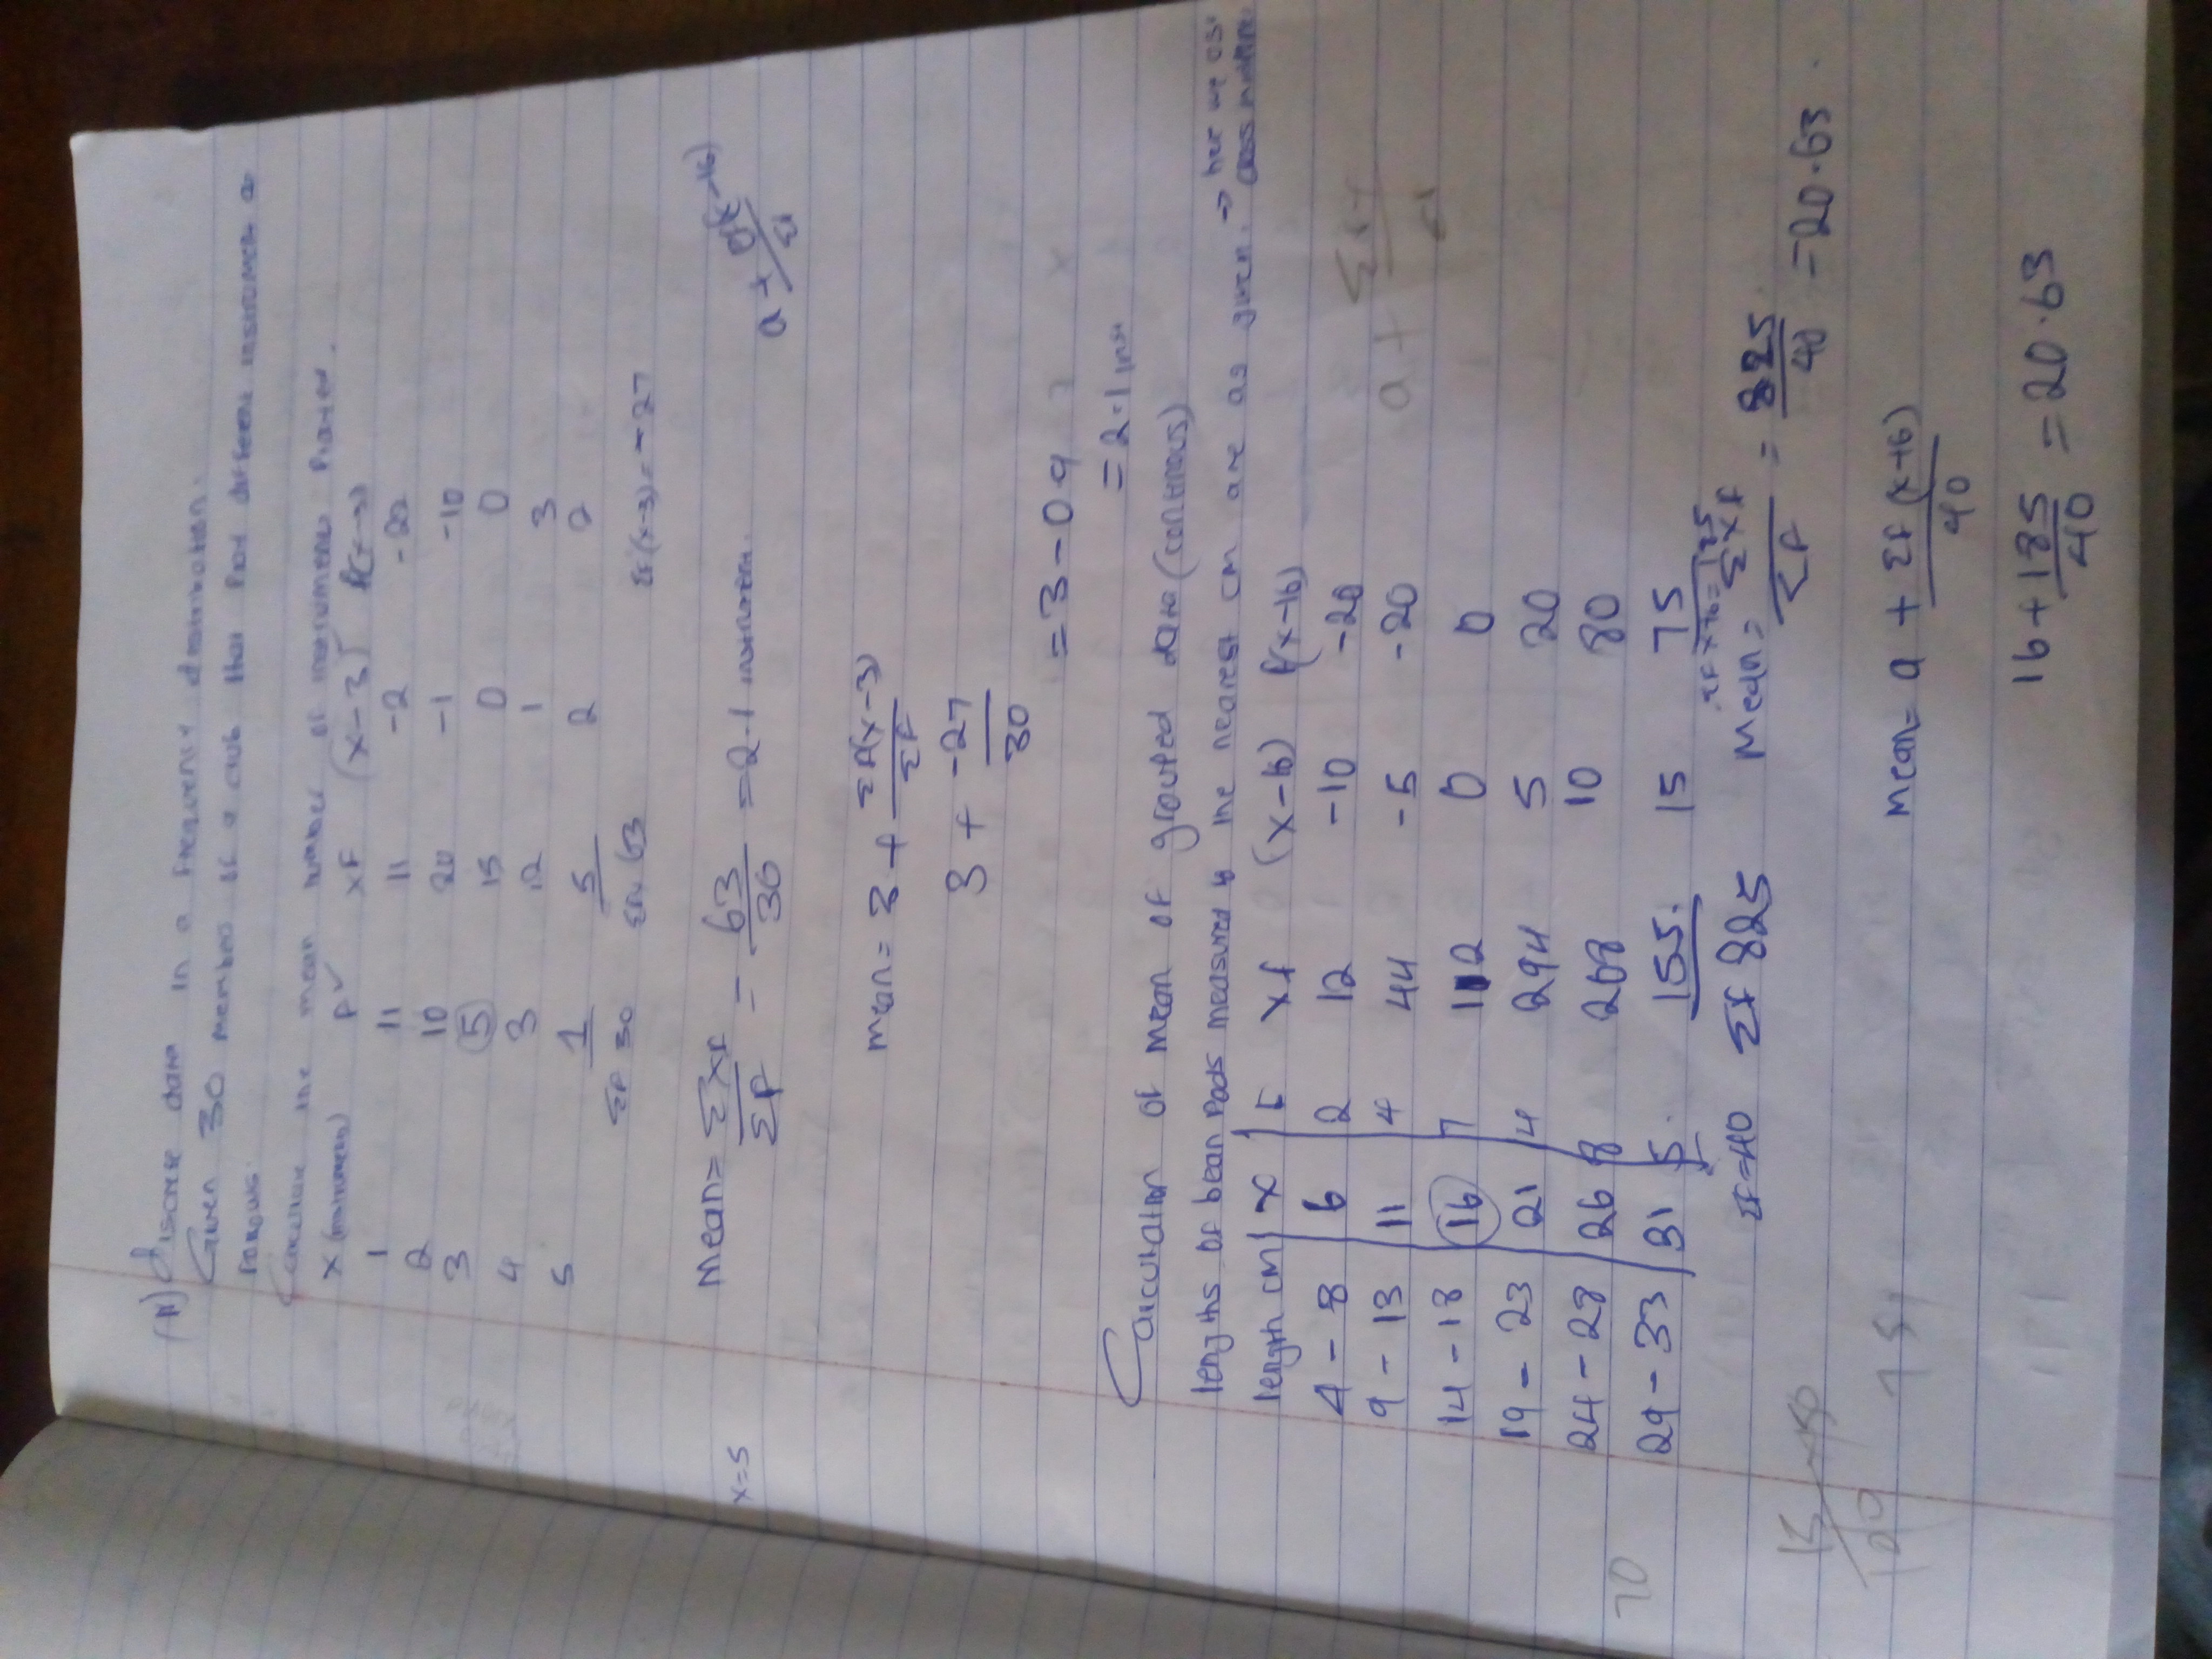 (A) Discrete data in a frequency distribution.
Given 30 members of a club that play different instrument as
follows.
Calculate the mean number of instruments played.
x (instruments) f ✓ xf (x-3) f(x-3)
1 11 11 -2 -22
2 10 20 -1 -10
3 5 15 0 0
4 3 12 1 3
5 1 5 2 2
Σf 30 Σfx 63 Σf(x-3) = -27
Mean = Σxf/Σf = 63/30 = 2.1 instrument.
x=5
mean = 3 + Σf(x-3)/Σf
3 + -27/30
= 3 - 0.9
= 2.1 inst
Calculation of mean of grouped data (continous)
lengths of bean pods measured to the nearest cm are as given. → here we use
class midpoint
length cm x f xf (x-16) f(x-16)
4 - 8 6 2 12 -10 -20
9 - 13 11 4 44 -5 -20
14 - 18 16 7 112 0 0
19 - 23 21 4 294 5 20
24 - 28 26 8 208 10 80
29 - 33 31 5 155 15 75
Σf=40 Σf 825
Mean = Σxf/Σf = 825/40 = 20.63
70
Mean = a + Σf(x-16)/40
16 + 185/40 = 20.63